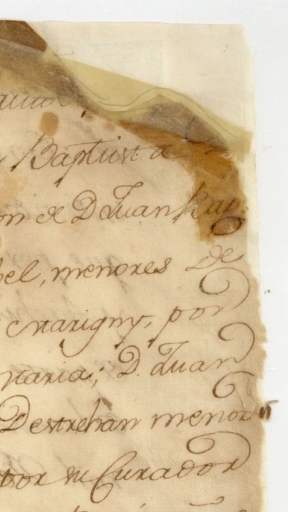 Baptista
on de D Juan Bap
bel, menores de
Marigny, por
ntaria; D. Juan
Destrehan menor
por su Curador